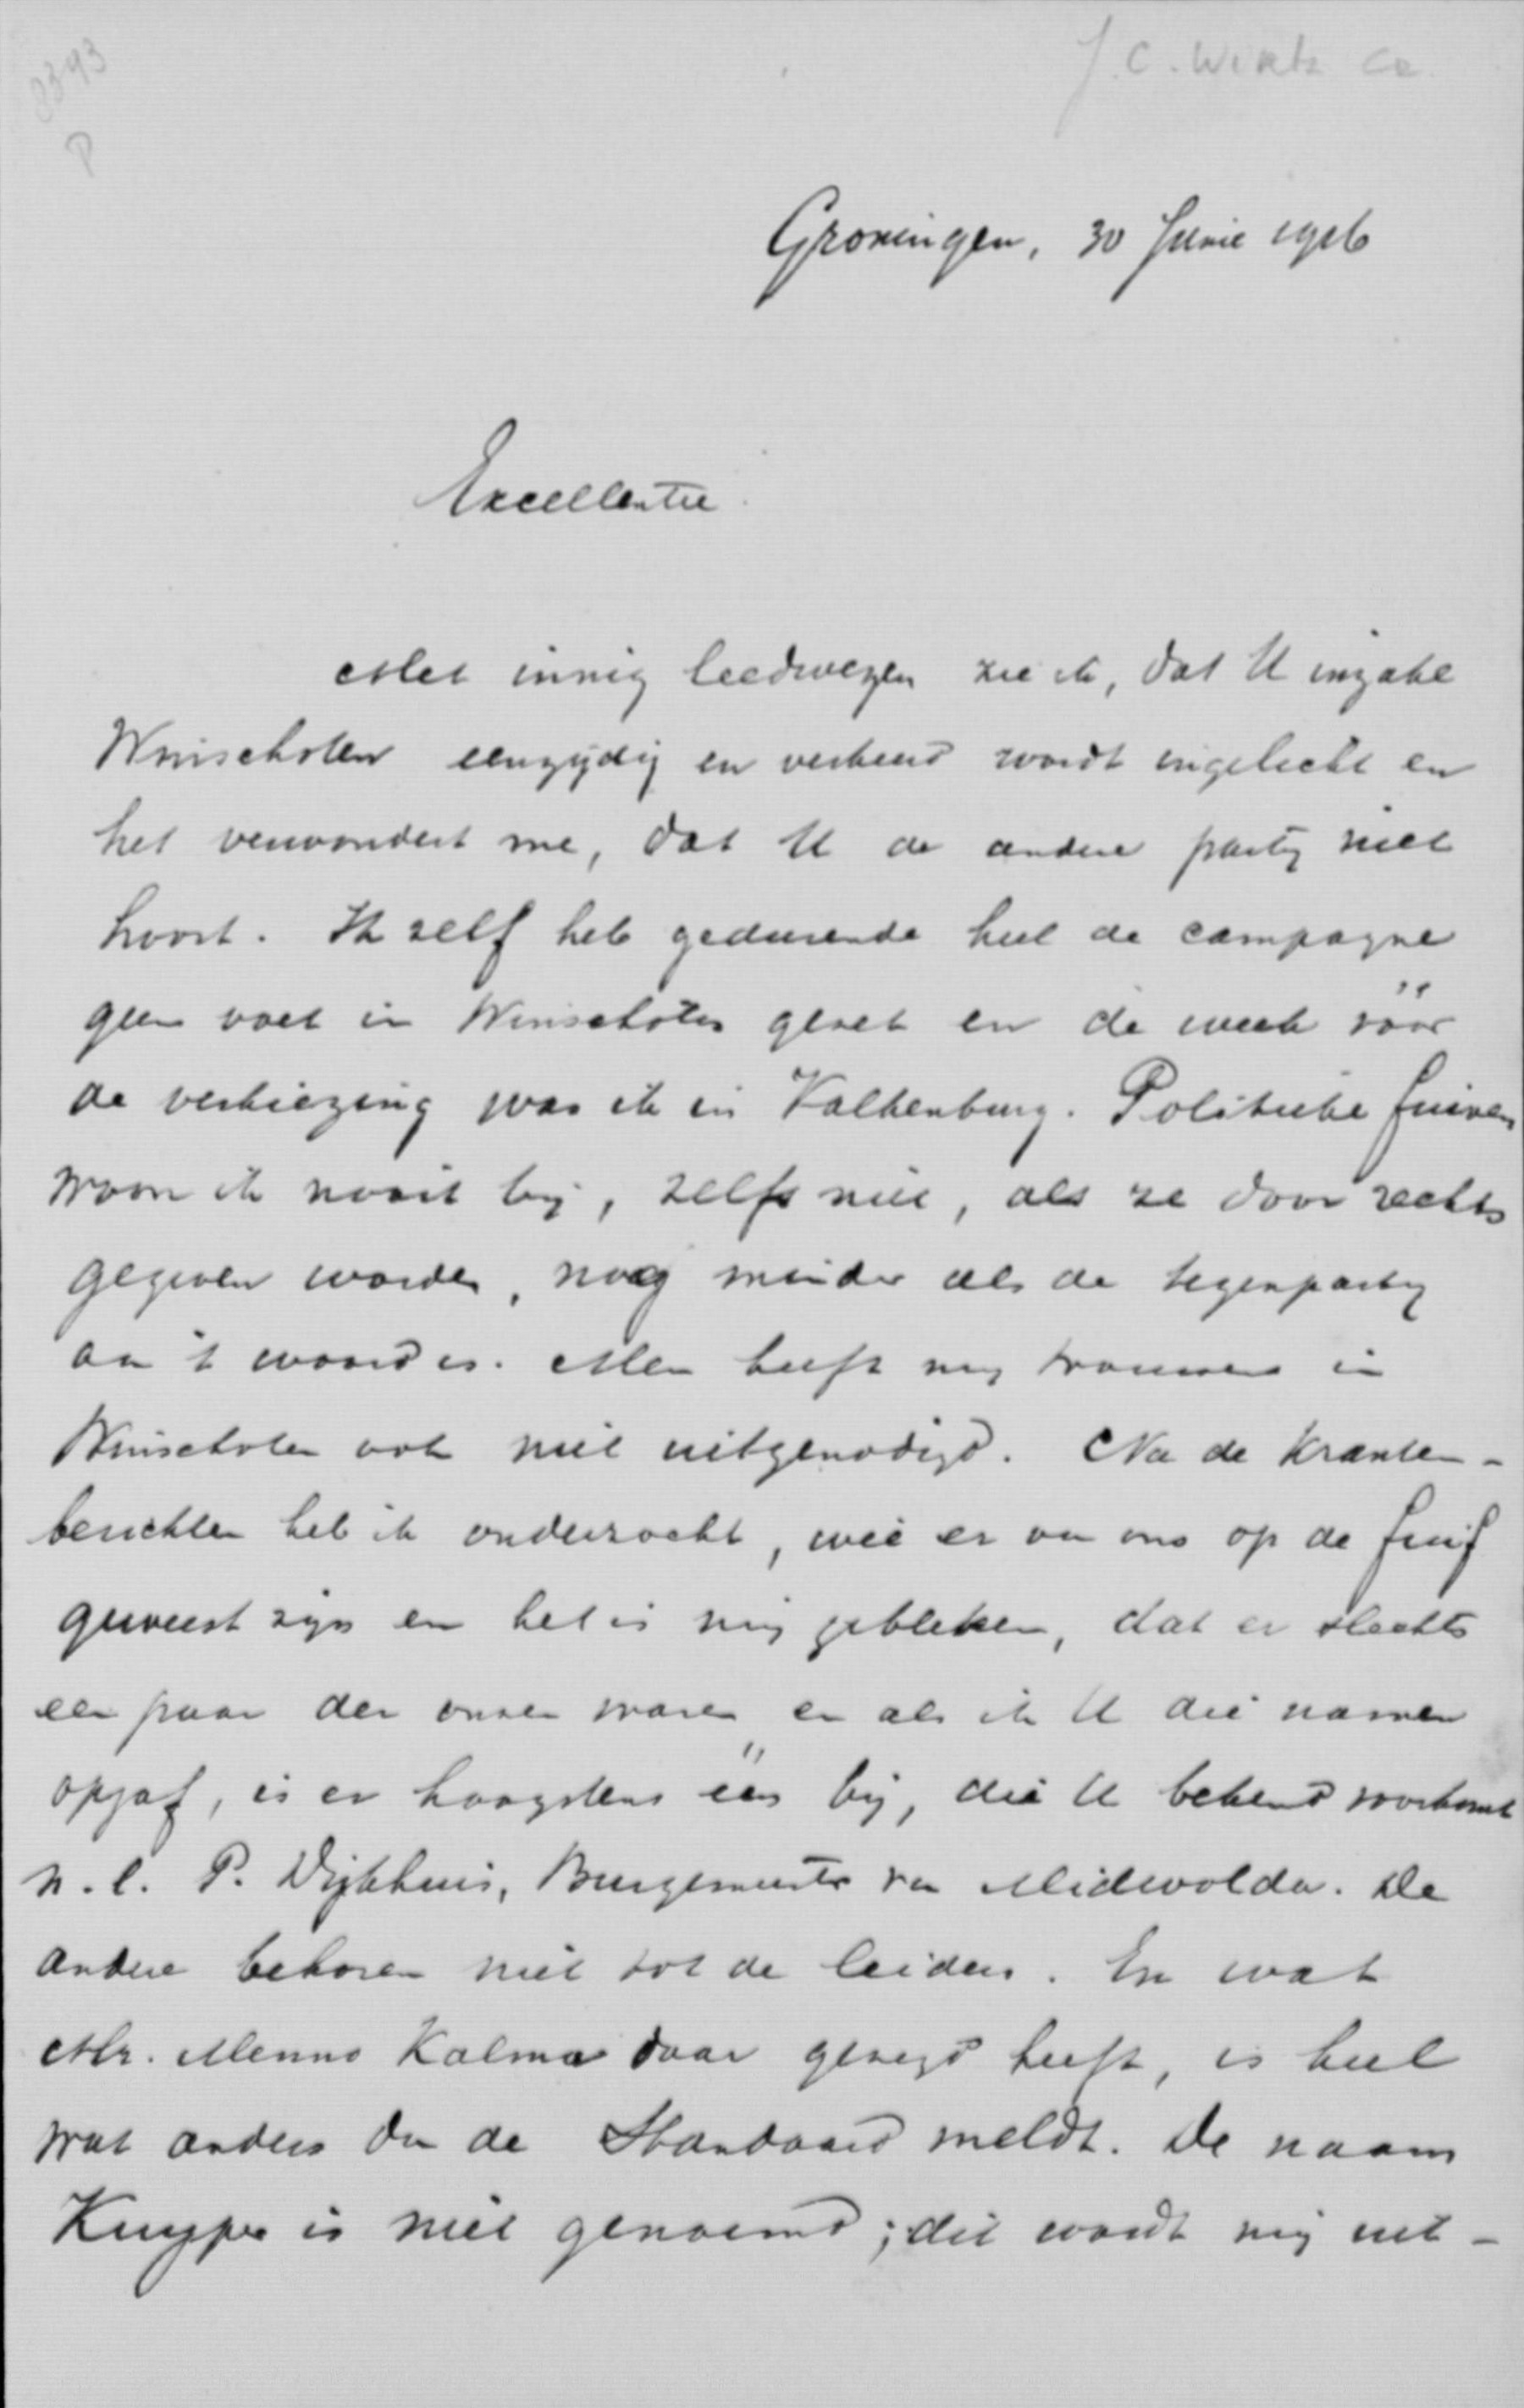 8393
P
J. C. Wirtz Cz.
Groningen, 30 Junie 1916
Excellentie
Met innig leedwezen zie ik, dat U inzake
Winschoten eenzijdig en verkeerd wordt ingelicht en
het verwondert me, dat U de andere partij niet
hoort. Ik zelf heb gedurende heel de campagne
geen voet in Winschoten gezet en de week vóór
de verkiezing was ik in Valkenburg. Politieke fuiven
woon ik nooit bij, zelfs niet, als ze door rechts
gegeven worden, nog minder als de tegenpartij
aan 't woord is. Men heeft mij trouwens in
Winschoten ook niet uitgenodigd. Na de kranten-
berichten heb ik onderzocht, wie er van ons op de fuif
geweest zijn en het is mij gebleken, dat er slechts
een paar der onzen waren en als ik U die namen
opgaf, is er hoogstens één bij, die U bekend voorkomt
n.l. P. Dijkhuis, Burgemeester van Midwolda. De
andere behoren niet tot de leiders. En wat
Mr. Menno Kalma daar gezegd heeft, is heel
wat anders dan de Standaard meldt. De naam
Kuyper is niet genoemd; dit wordt mij uit-